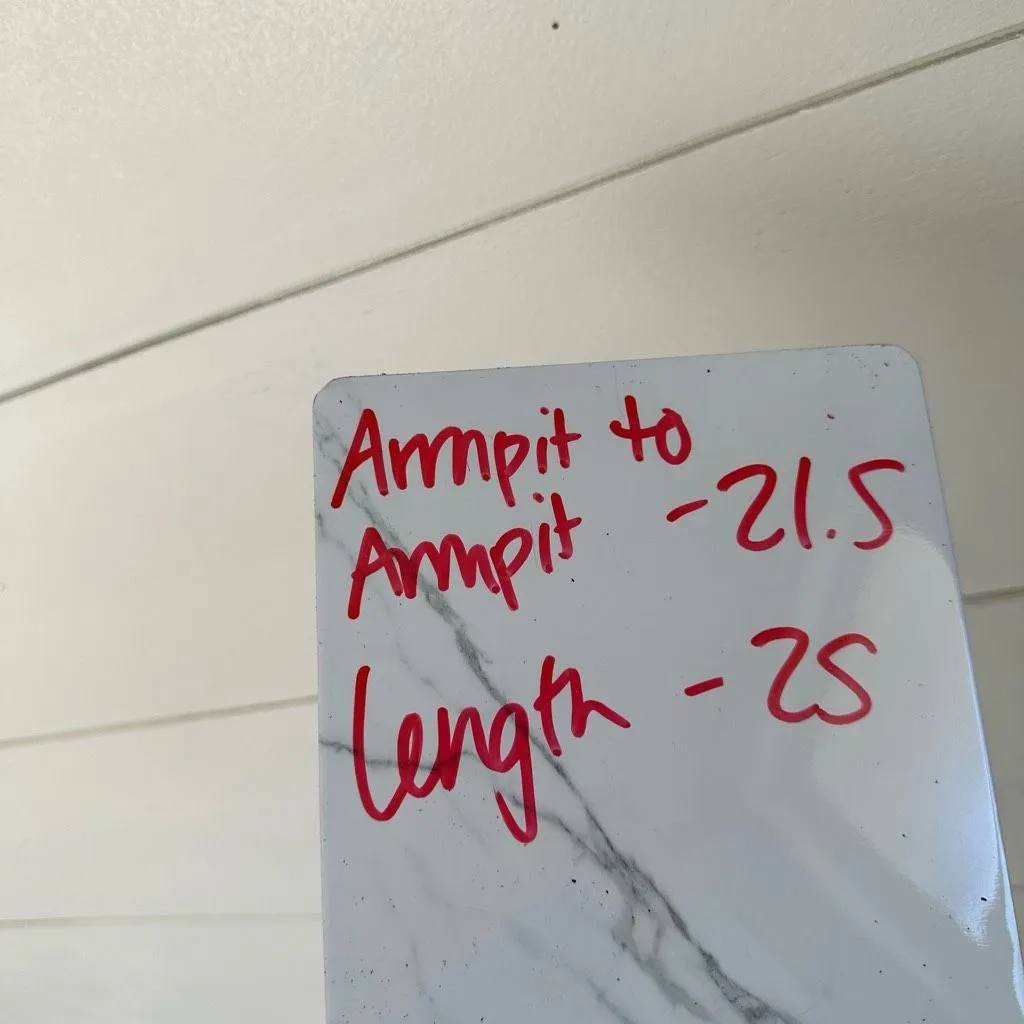 Armpit to
Armpit - 21.5
length - 25